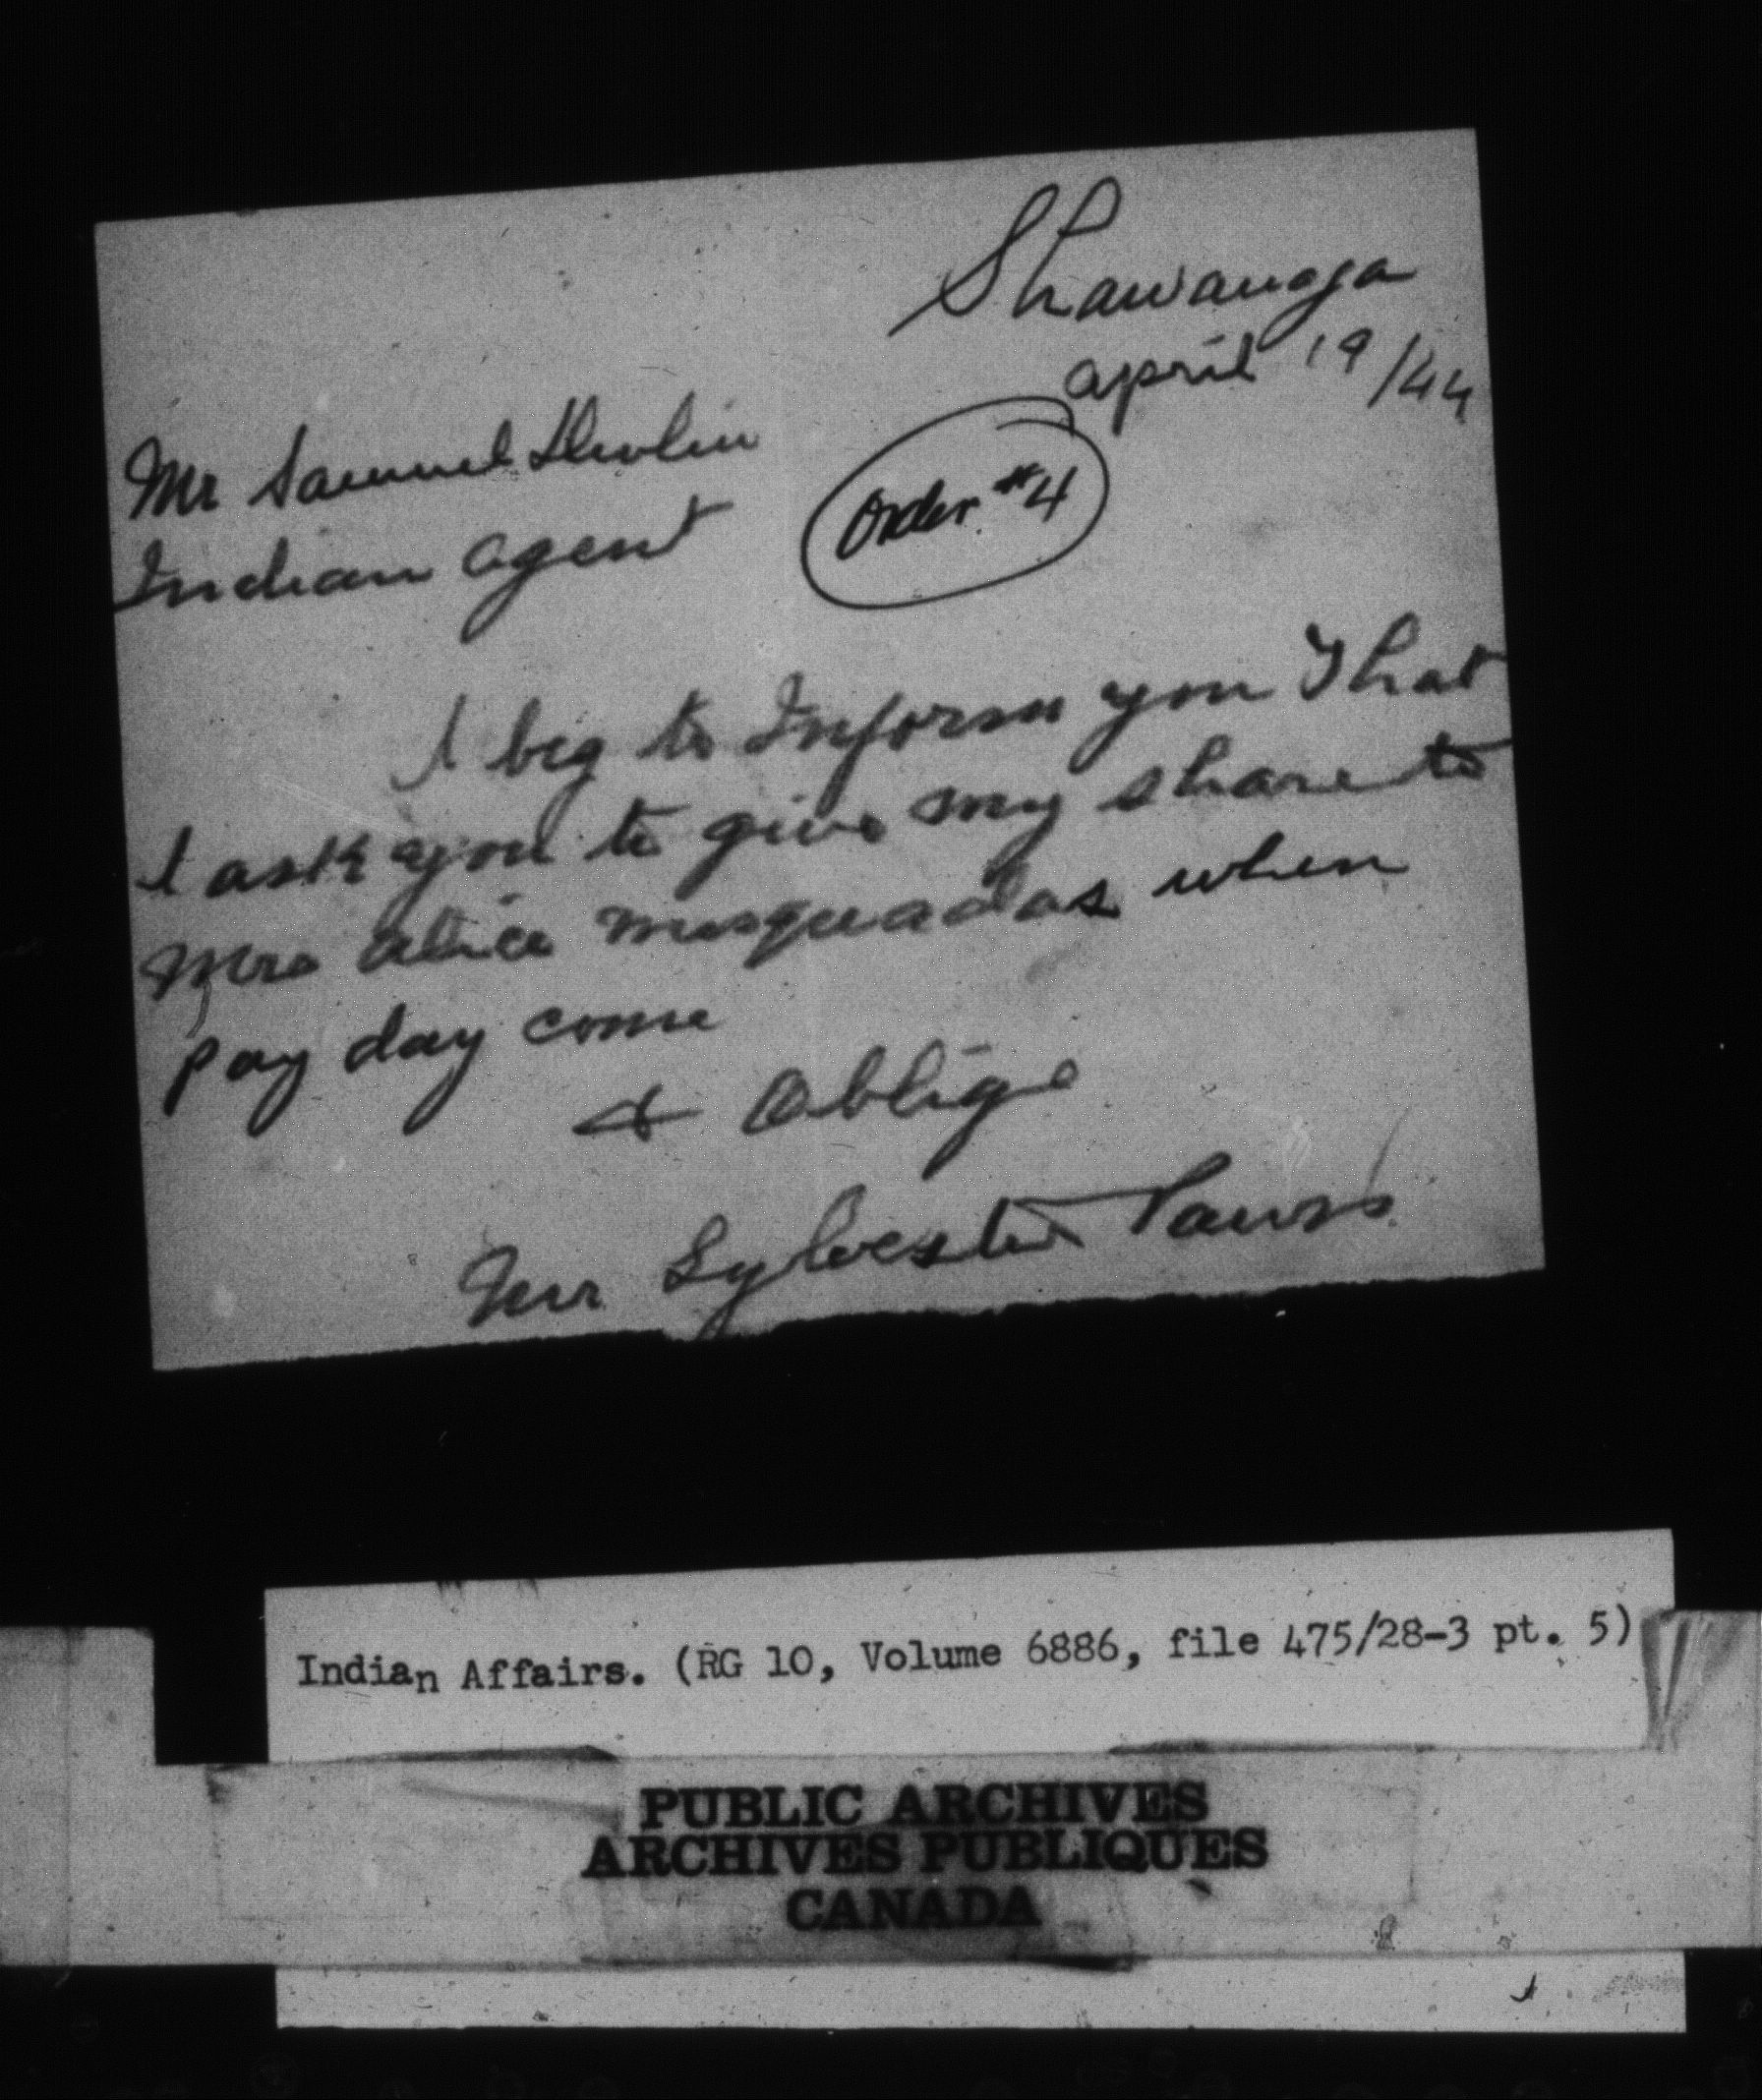 Shawanaga
april 19/44
Mr Samuel Devlin
Indian agent
Order #4
I beg to Inform you That
I ask you to give my share to
Mrs alice misquadas when
pay day come
& Oblige
Mr Sylvester Pawis
Indian Affairs. (RG 10, Volume 6886, file 475/28-3 pt. 5)
PUBLIC ARCHIVES
ARCHIVES PUBLIQUES
CANADA